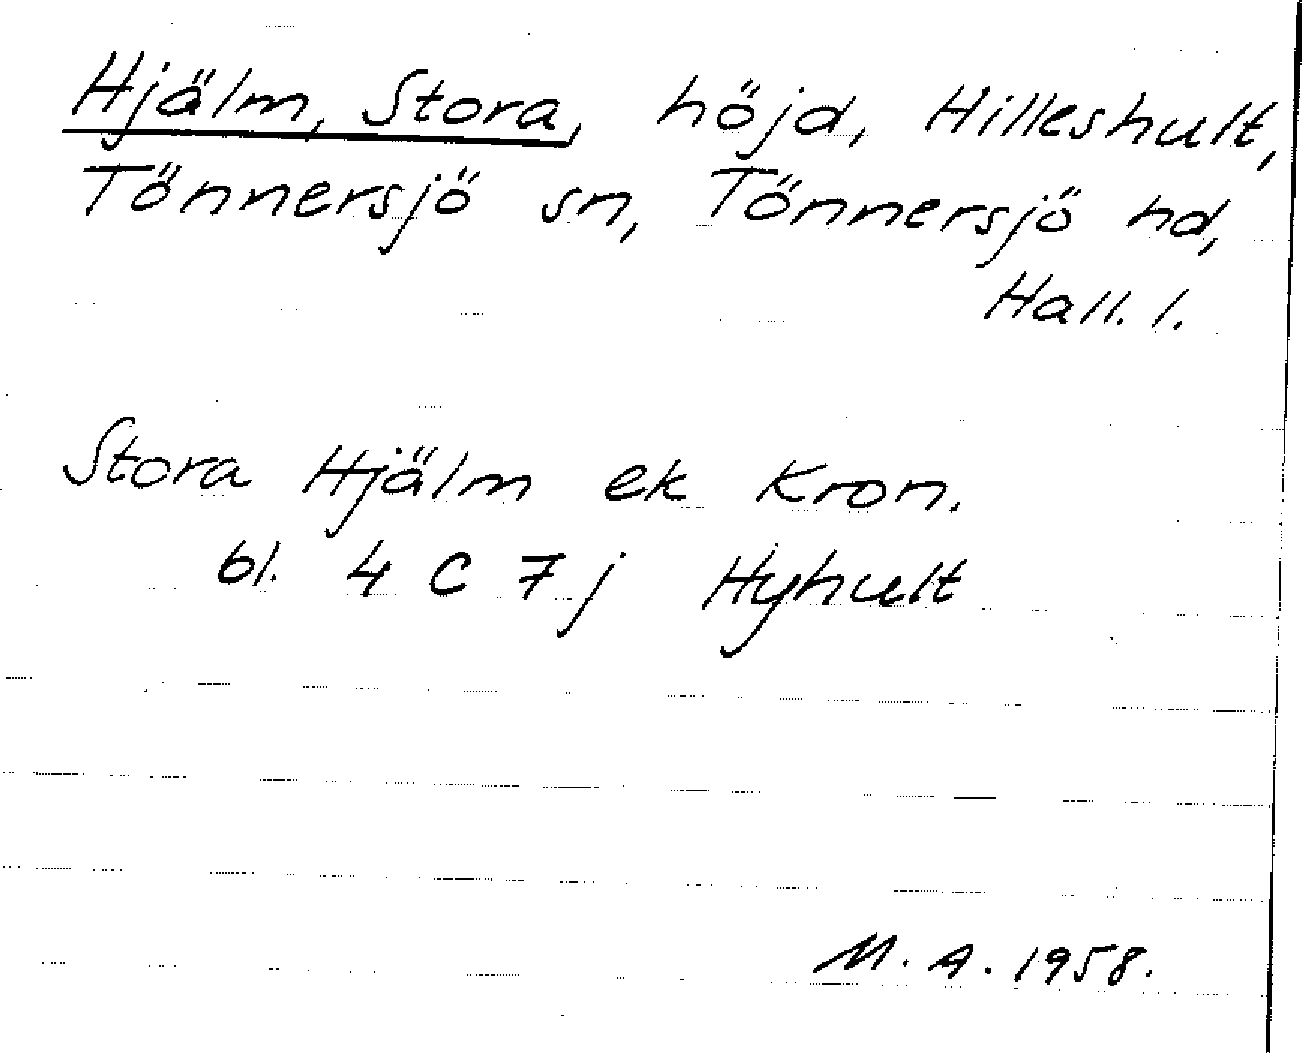 Hjälm, Stora, höjd, Hilleshult,
Tönnersjö sn, Tönnersjö hd,
Hall. l.
Stora Hjälm ek Kron.
bl. 4 C 7 j Hyhult
M. A. 1958.